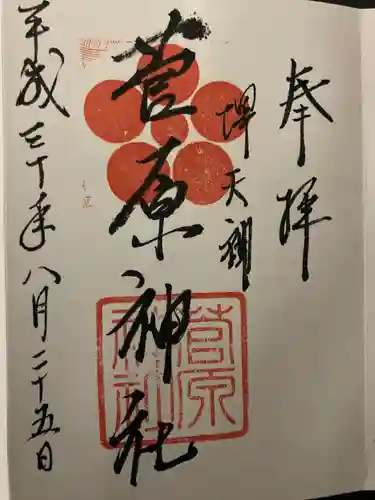 奉拝
堺天神
菅原神社
菅原神社
平成三十年八月二十五日